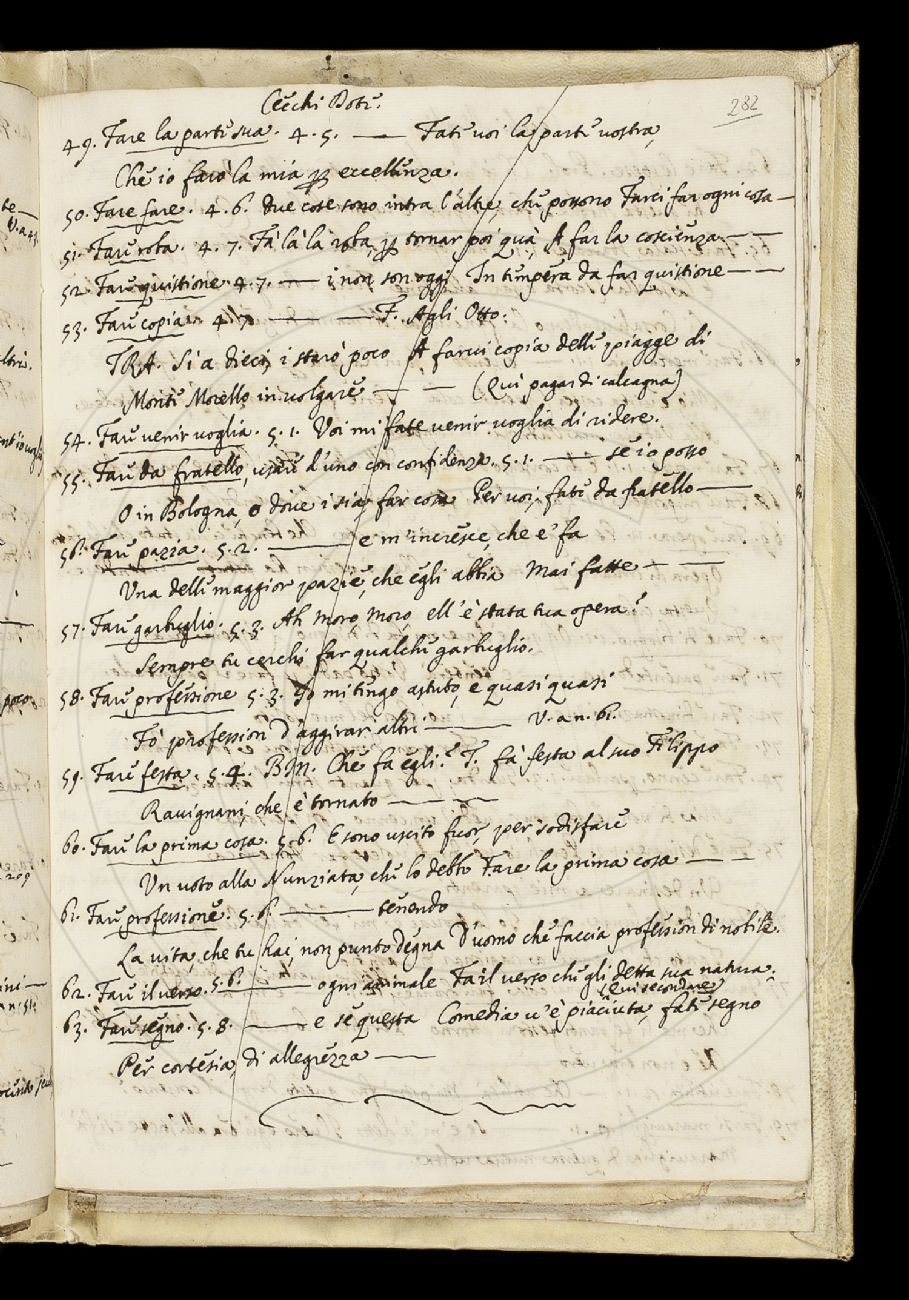 Cecchi Dote.
282
49. Fare la parte sua. 4. 5. — Fate voi la parte vostra,
Che io farò la mia per eccellenza.
50. Fare fare. 4. 6. Due cose sono intra l'altre, che possono Farci far ogni cosa —
51. Fare roba. 4. 7. Fa là la roba, per tornar poi quà, A far la coscienza — —
52. Fare quistione. 4. 7. — i non son oggi In tempera da far quistione — —
53. Fare copia. 4. 7. — — F. Agli Otto:
TRA. Sì a dieci, i starò poco A farvi copia delle piagge di
Monte Morello in volgare — — (Qui pagar di calcagna)
54. Fare venir voglia. 5. 1. Voi mi fate venir voglia di ridere.
55. Fare da fratello, usare d'uno con confidenza. 5. 1. — se io posso
O in Bologna, o dove i sia, far cosa Per voi, fate da fratello —
56. Fare pazia. 5. 2. — e m'incresce, che e' fa
Una delle maggior pazie, che egli abbia Mai fatte — —
57. Fare garbuglio. 5. 3. Ah Moro, Moro, ell' è stata tua opera?
Sempre tu cerchi far qualche garbuglio.
58. Fare professione 5. 3. Io mi tengo astuto, e quasi quasi
Fò profession d'aggirar altri — V. a n. 61.
59. Fare festa. 5. 4. BIN. Che fa egli? T. fà festa al suo Filippo
Ravignani, che è tornato — — —
60. Fare la prima cosa. 5. 6. E sono uscito fuor, per sodisfare
Un voto alla Nunziata, che lo debbo Fare la prima cosa — —
61. Fare professione. 5. 6. — tenendo
La vita, che tu hai, non punto degna D'uomo che faccia profession di nobile.
62. Fare il verso. 5. 6. — ogni animale Fa il verso che gli detta sua natura:
(Qui secondare)
63. Fare segno. 5. 8. — e se questa Comedia v'è piaciuta, fate segno
Per cortesia, di allegrezza —